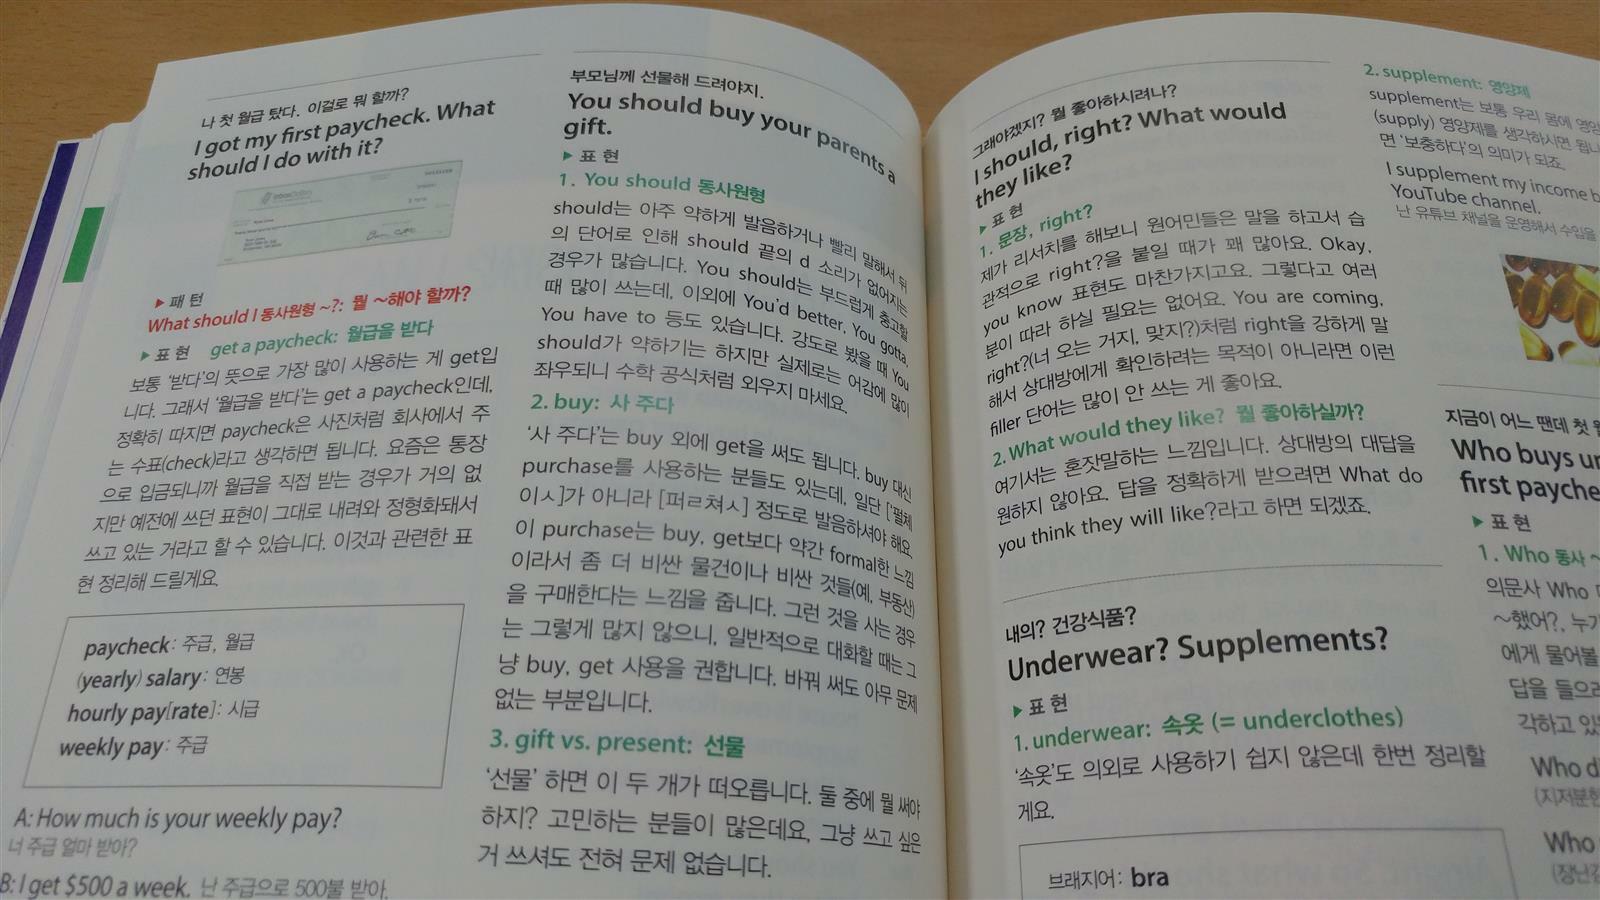 나 첫 월급 탔다. 이걸로 뭐 할까?
I got my first paycheck. What
should I do with it?
▶ 패 턴
What should I 동사원형 ~?: 뭘 ~해야 할까?
▶ 표 현 get a paycheck: 월급을 받다
보통 '받다'의 뜻으로 가장 많이 사용하는 게 get입
니다. 그래서 '월급을 받다'는 get a paycheck인데,
정확히 따지면 paycheck은 사진처럼 회사에서 주
는 수표(check)라고 생각하면 됩니다. 요즘은 통장
으로 입금되니까 월급을 직접 받는 경우가 거의 없
지만 예전에 쓰던 표현이 그대로 내려와 정형화돼서
쓰고 있는 거라고 할 수 있습니다. 이것과 관련한 표
현 정리해 드릴게요.
paycheck: 주급, 월급
(yearly) salary: 연봉
hourly pay[rate]: 시급
weekly pay: 주급
A: How much is your weekly pay?
너 주급 얼마 받아?
B: I get $500 a week. 난 주급으로 500불 받아.
부모님께 선물해 드려야지.
You should buy your parents a
gift.
▶ 표 현
1. You should 동사원형
should는 아주 약하게 발음하거나 빨리 말해서 뒤
의 단어로 인해 should 끝의 d 소리가 없어지는
경우가 많습니다. You should는 부드럽게 충고할
때 많이 쓰는데, 이외에 You'd better, You gotta,
You have to 등도 있습니다. 강도로 봤을 때 You
should가 약하기는 하지만 실제로는 어감에 많이
좌우되니 수학 공식처럼 외우지 마세요.
2. buy: 사 주다
'사 주다'는 buy 외에 get을 써도 됩니다. buy 대신
purchase를 사용하는 분들도 있는데, 일단 ['펄체
이ㅅ]가 아니라 [퍼ㄹ쳐ㅅ] 정도로 발음하셔야 해요.
이 purchase는 buy, get보다 약간 formal한 느낌
이라서 좀 더 비싼 물건이나 비싼 것들(예, 부동산)
을 구매한다는 느낌을 줍니다. 그런 것을 사는 경우
는 그렇게 많지 않으니, 일반적으로 대화할 때는 그
냥 buy, get 사용을 권합니다. 바꿔 써도 아무 문제
없는 부분입니다.
3. gift vs. present: 선물
'선물' 하면 이 두 개가 떠오릅니다. 둘 중에 뭘 써야
하지? 고민하는 분들이 많은데요, 그냥 쓰고 싶은
거 쓰셔도 전혀 문제 없습니다.
그래야겠지? 뭘 좋아하시려나?
I should, right? What would
they like?
▶ 표 현
1. 문장, right?
제가 리서치를 해보니 원어민들은 말을 하고서 습
관적으로 right?을 붙일 때가 꽤 많아요. Okay,
you know 표현도 마찬가지고요. 그렇다고 여러
분이 따라 하실 필요는 없어요. You are coming,
right?(너 오는 거지, 맞지?)처럼 right을 강하게 말
해서 상대방에게 확인하려는 목적이 아니라면 이런
filler 단어는 많이 안 쓰는 게 좋아요.
2. What would they like? 뭘 좋아하실까?
여기서는 혼잣말하는 느낌입니다. 상대방의 대답을
원하지 않아요. 답을 정확하게 받으려면 What do
you think they will like?라고 하면 되겠죠.
내의? 건강식품?
Underwear? Supplements?
▶ 표 현
1. underwear: 속옷 (= underclothes)
'속옷'도 의외로 사용하기 쉽지 않은데 한번 정리할
게요.
브래지어: bra
2. supplement: 영양제
supplement는 보통 우리 몸에 영양
(supply) 영양제를 생각하시면 됩니
면 '보충하다'의 의미가 되죠.
I supplement my income b
YouTube channel.
난 유튜브 채널을 운영해서 수입을
지금이 어느 땐데 첫 월
Who buys un
first payche
▶ 표 현
1. Who 동사 ~
의문사 Who
~했어?, 누가
에게 물어볼
답을 들으려
각하고 있
Who d
(지저분한
Who
(장난감